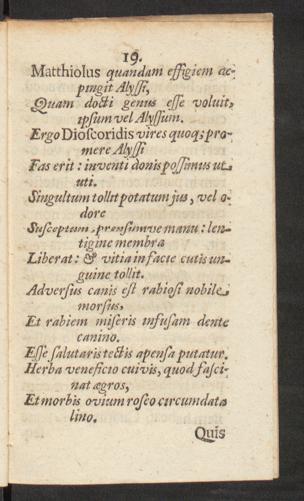 19.
Matthiolus quandam effigiem de-
pingit Alyssi,
Quam docti genus esse voluit,
ipsum vel Alyssum.
Ergo Dioscoridis vires quoq; pro-
mere Alyssi
Fas erit: inventi donis possimus ut
uti.
Singultum tollit potatum jus, vel o-
dore
Susceptum, prensumve manu: len-
tigine membra
Liberat: & vitia in facie cutis un-
guine tollit.
Adversus canis est rabiosi nobile
morsus,
Et rabiem miseris infusam dente
canino.
Esse salutaris tectis apensa putatur.
Herba veneficio cuivis, quod fasci-
nat ægros,
Et morbis ovium roseo circumdata
lino.
Quis